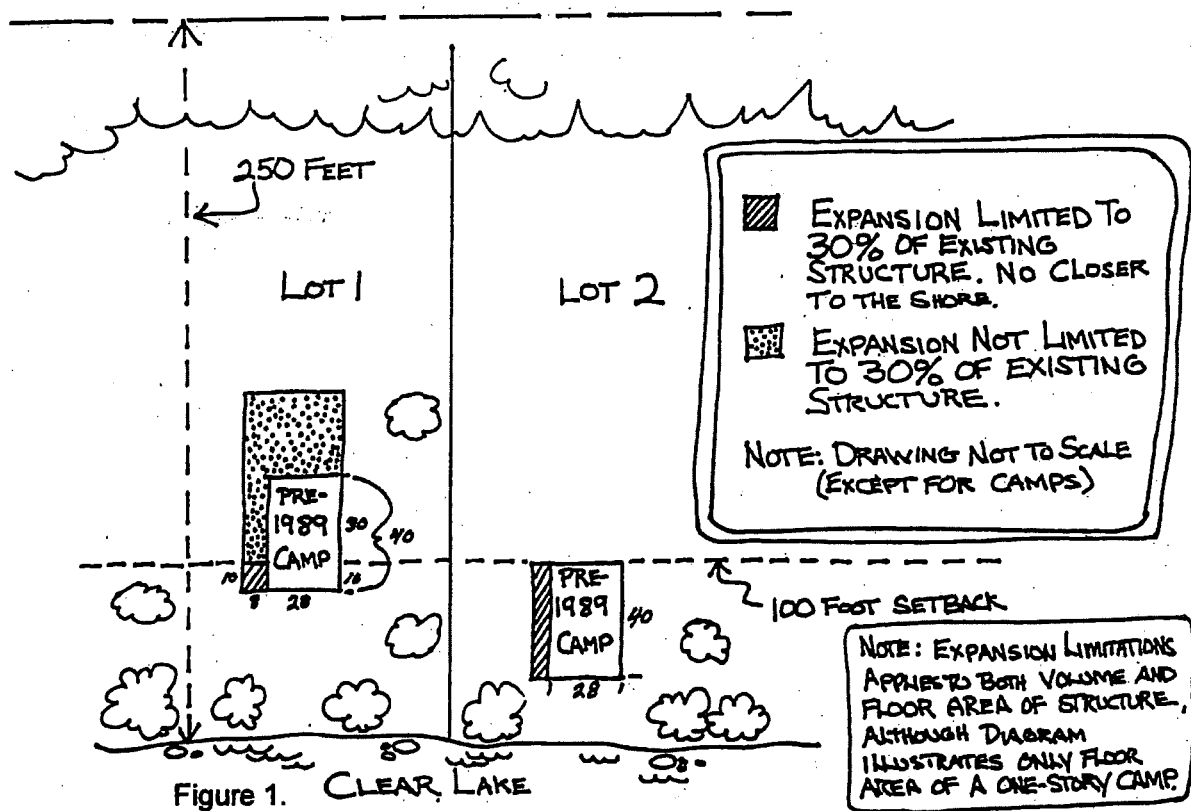 250 FEET
LOT 1
LOT 2
EXPANSION LIMITED TO
30% OF EXISTING
STRUCTURE. NO CLOSER
TO THE SHORE.
EXPANSION NOT LIMITED
TO 30% OF EXISTING
STRUCTURE.
NOTE: DRAWING NOT TO SCALE
(EXCEPT FOR CAMPS)
PRE-
1989
CAMP
30
40
10
8
28
PRE-
1989
CAMP
40
28
100 FOOT SETBACK
NOTE: EXPANSION LIMITATIONS
APPLIES TO BOTH VOLUME AND
FLOOR AREA OF STRUCTURE,
ALTHOUGH DIAGRAM
ILLUSTRATES ONLY FLOOR
AREA OF A ONE-STORY CAMP.
Figure 1.
CLEAR LAKE